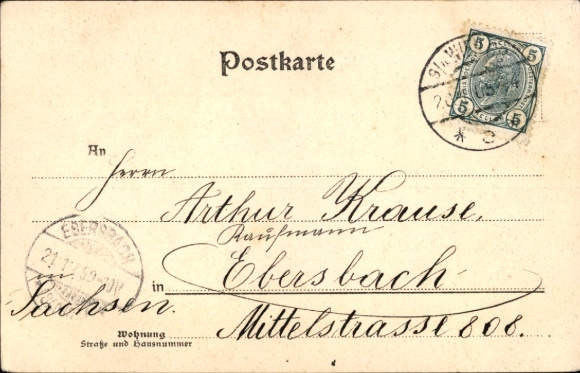 Postkarte
5 5
5 5
An
Herrn
Arthur Krause,
Kaufmann
in Ebersbach
in
Sachsen.
Mittelstrasse 808.
Wohnung
Straße und Hausnummer
EBERSBACH